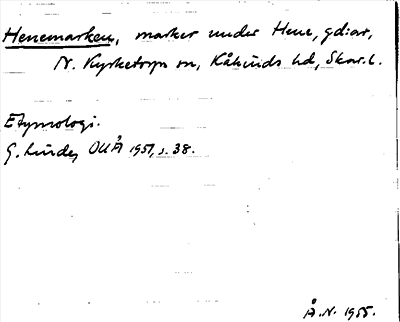 Henemarken, marker under Hene, gdar,
N. Kyrketorp sn, Kåkinds hd, Skar. l.
Etymologi.
G. Linde, OUÅ 1951, s. 38.
Å. N. 1955.